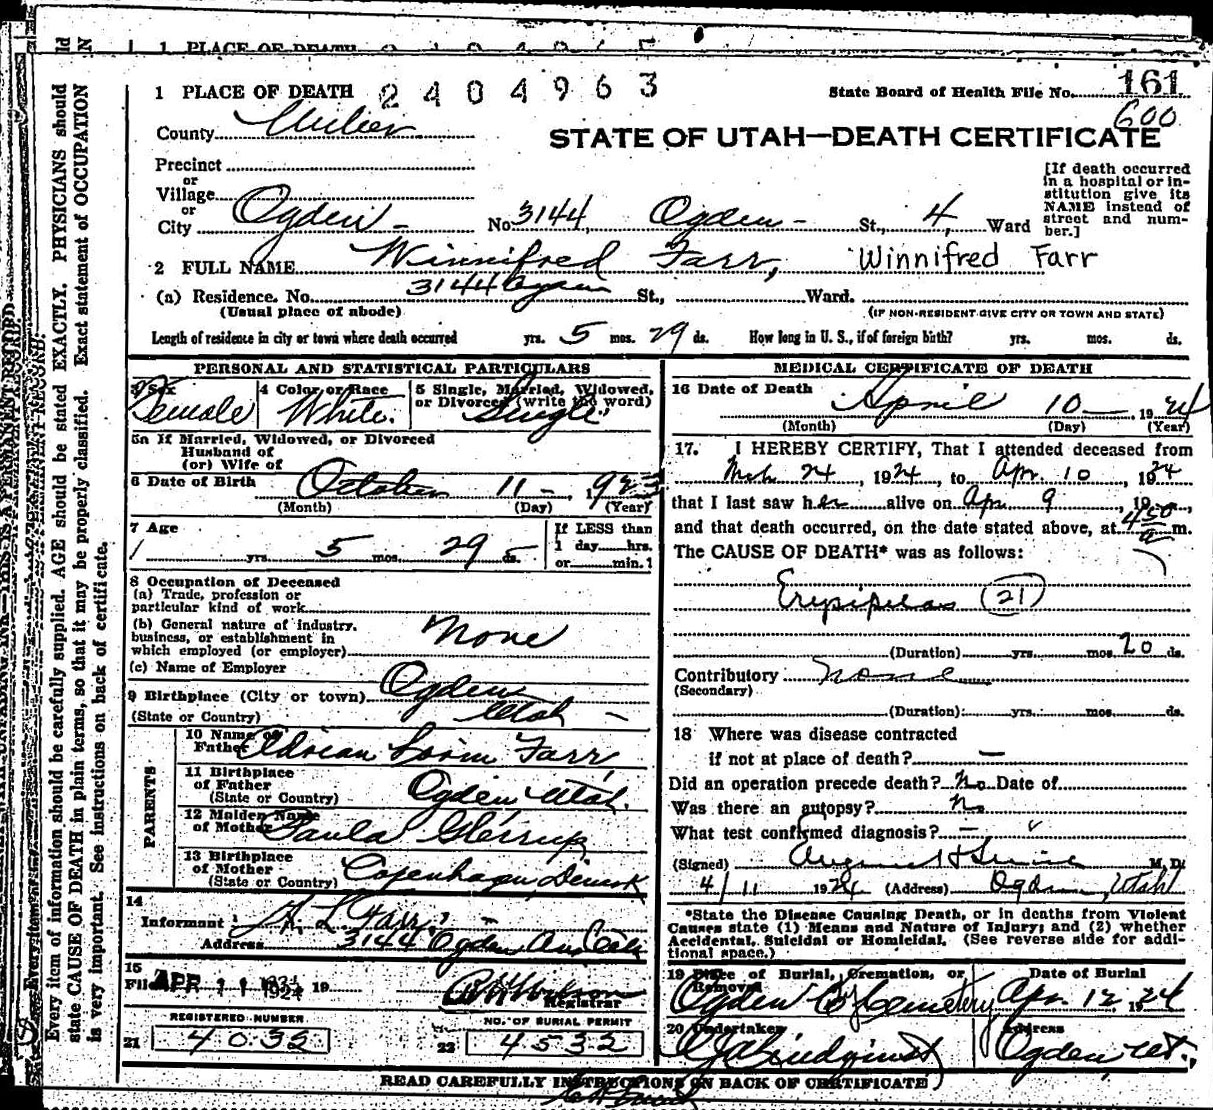 1 PLACE OF DEATH 2404963
State Board of Health File No. 161
600
County
STATE OF UTAH—DEATH CERTIFICATE
Precinct
or
Village
or
City Ogden - No. 3144, Ogden - St., 4, Ward
[If death occurred in a hospital or institution give its NAME instead of street and number.]
2 FULL NAME Winnifred Farr, Winnifred Farr
(a) Residence. No. 3144 Ogden St., Ward.
(Usual place of abode) (IF NON-RESIDENT GIVE CITY OR TOWN AND STATE)
Length of residence in city or town where death occurred yrs. 5 mos. 29 ds. How long in U. S., if of foreign birth? yrs. mos. ds.
PERSONAL AND STATISTICAL PARTICULARS
3 Sex Female
4 Color or Race White.
5 Single, Married, Widowed, or Divorced (write the word) Single
5a If Married, Widowed, or Divorced
Husband of
(or) Wife of
6 Date of Birth October 11 - 1923
(Month) (Day) (Year)
7 Age
yrs. 5 mos. 29 ds.
If LESS than
1 day hrs.
or min.
8 Occupation of Deceased
(a) Trade, profession or
particular kind of work
(b) General nature of industry.
business, or establishment in
which employed (or employer) None
(c) Name of Employer
9 Birthplace (City or town) Ogden
(State or Country) Utah -
PARENTS
10 Name of Father Adrian Lorin Farr,
11 Birthplace of Father (State or Country) Ogden Utah.
12 Maiden Name of Mother Paula Glerrup,
13 Birthplace of Mother (State or Country) Copenhagen Denmk
14
Informant A. L. Farr. -
Address 3144 Ogden Ave
15
Filed APR 11 1924 19 Wilson
Registrar
REGISTERED NUMBER
21 4036
NO. OF BURIAL PERMIT
22 4532
MEDICAL CERTIFICATE OF DEATH
16 Date of Death April 10 - , 1924
(Month) (Day) (Year)
17. I HEREBY CERTIFY, That I attended deceased from
Mch 24, 1924, to Apr. 10, 1924
that I last saw her alive on Apr. 9, 19
and that death occurred, on the date stated above, at 450 a m.
The CAUSE OF DEATH* was as follows:
Erysipelas (21)
(Duration) yrs. mos. 20 ds.
Contributory None
(Secondary)
(Duration): yrs. mos. ds.
18 Where was disease contracted
if not at place of death? —
Did an operation precede death? No Date of
Was there an autopsy? No
What test confirmed diagnosis? —
(Signed) M. D.
4/11 1924 (Address) Ogden, Utah
*State the Disease Causing Death, or in deaths from Violent
Causes state (1) Means and Nature of Injury; and (2) whether
Accidental, Suicidal or Homicidal. (See reverse side for addi-
tional space.)
19 Place of Burial, Cremation, or Removal Ogden City Cemetery
Date of Burial Apr. 12, 1924
20 Undertaker
Address Ogden Ut.,
READ CAREFULLY INSTRUCTIONS ON BACK OF CERTIFICATE
Every item of information should be carefully supplied. AGE should be stated EXACTLY. PHYSICIANS should
state CAUSE OF DEATH in plain terms, so that it may be properly classified. Exact statement of OCCUPATION
is very important. See instructions on back of certificate.